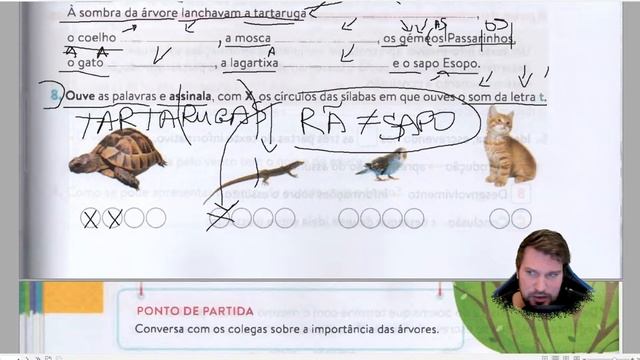 À sombra da árvore lanchavam a tartaruga
o coelho , a mosca , os gémeos Passarinhos,
o gato , a lagartixa e o sapo Esopo.
8. Ouve as palavras e assinala, com X, os círculos das sílabas em que ouves o som da letra t.
TARTARUGAS RÃ ≠ SAPO
PONTO DE PARTIDA
Conversa com os colegas sobre a importância das árvores.